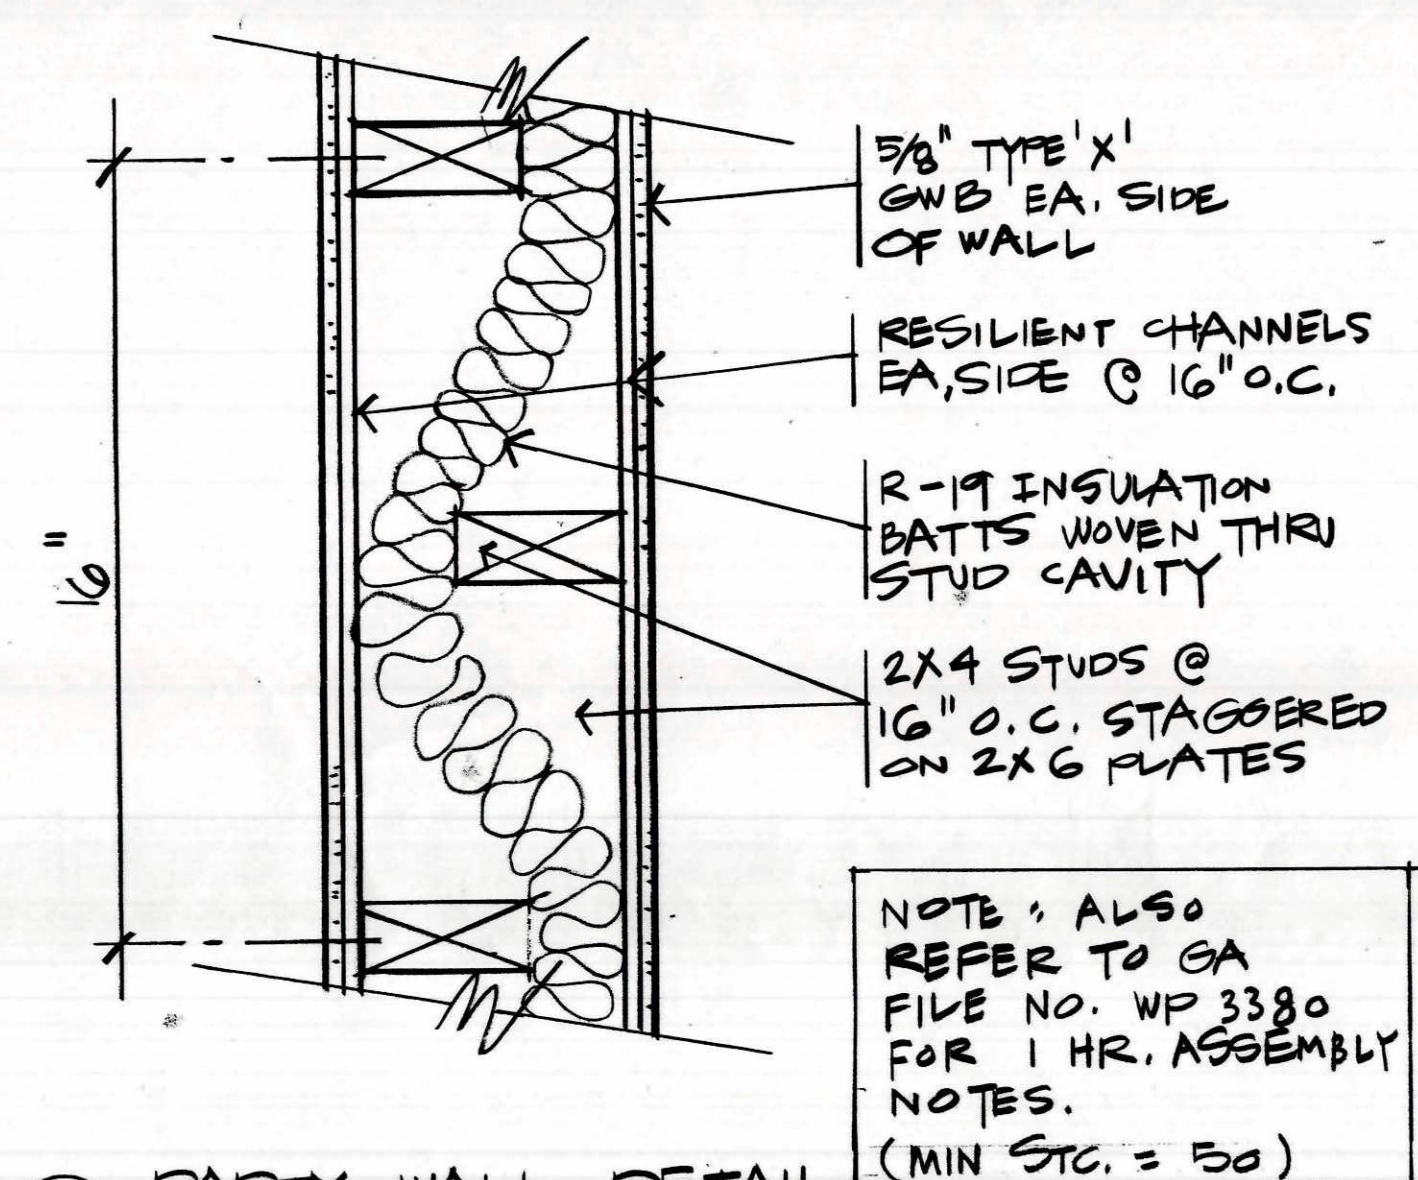 5/8" TYPE 'X'
GWB EA. SIDE
OF WALL
RESILIENT CHANNELS
EA, SIDE @ 16" O.C.
R-19 INSULATION
BATTS WOVEN THRU
STUD CAVITY
2X4 STUDS @
16" O.C. STAGGERED
ON 2X6 PLATES
16"
NOTE: ALSO
REFER TO GA
FILE NO. WP 3380
FOR 1 HR. ASSEMBLY
NOTES.
(MIN STC. = 50)
PARTY WALL DETAIL